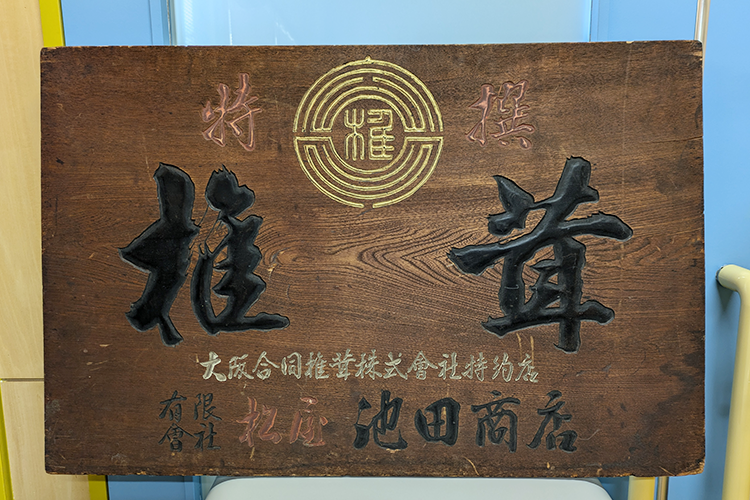 特 椎 撰
椎茸
大阪合同椎茸株式會社特約店
有限會社 松屋 池田商店